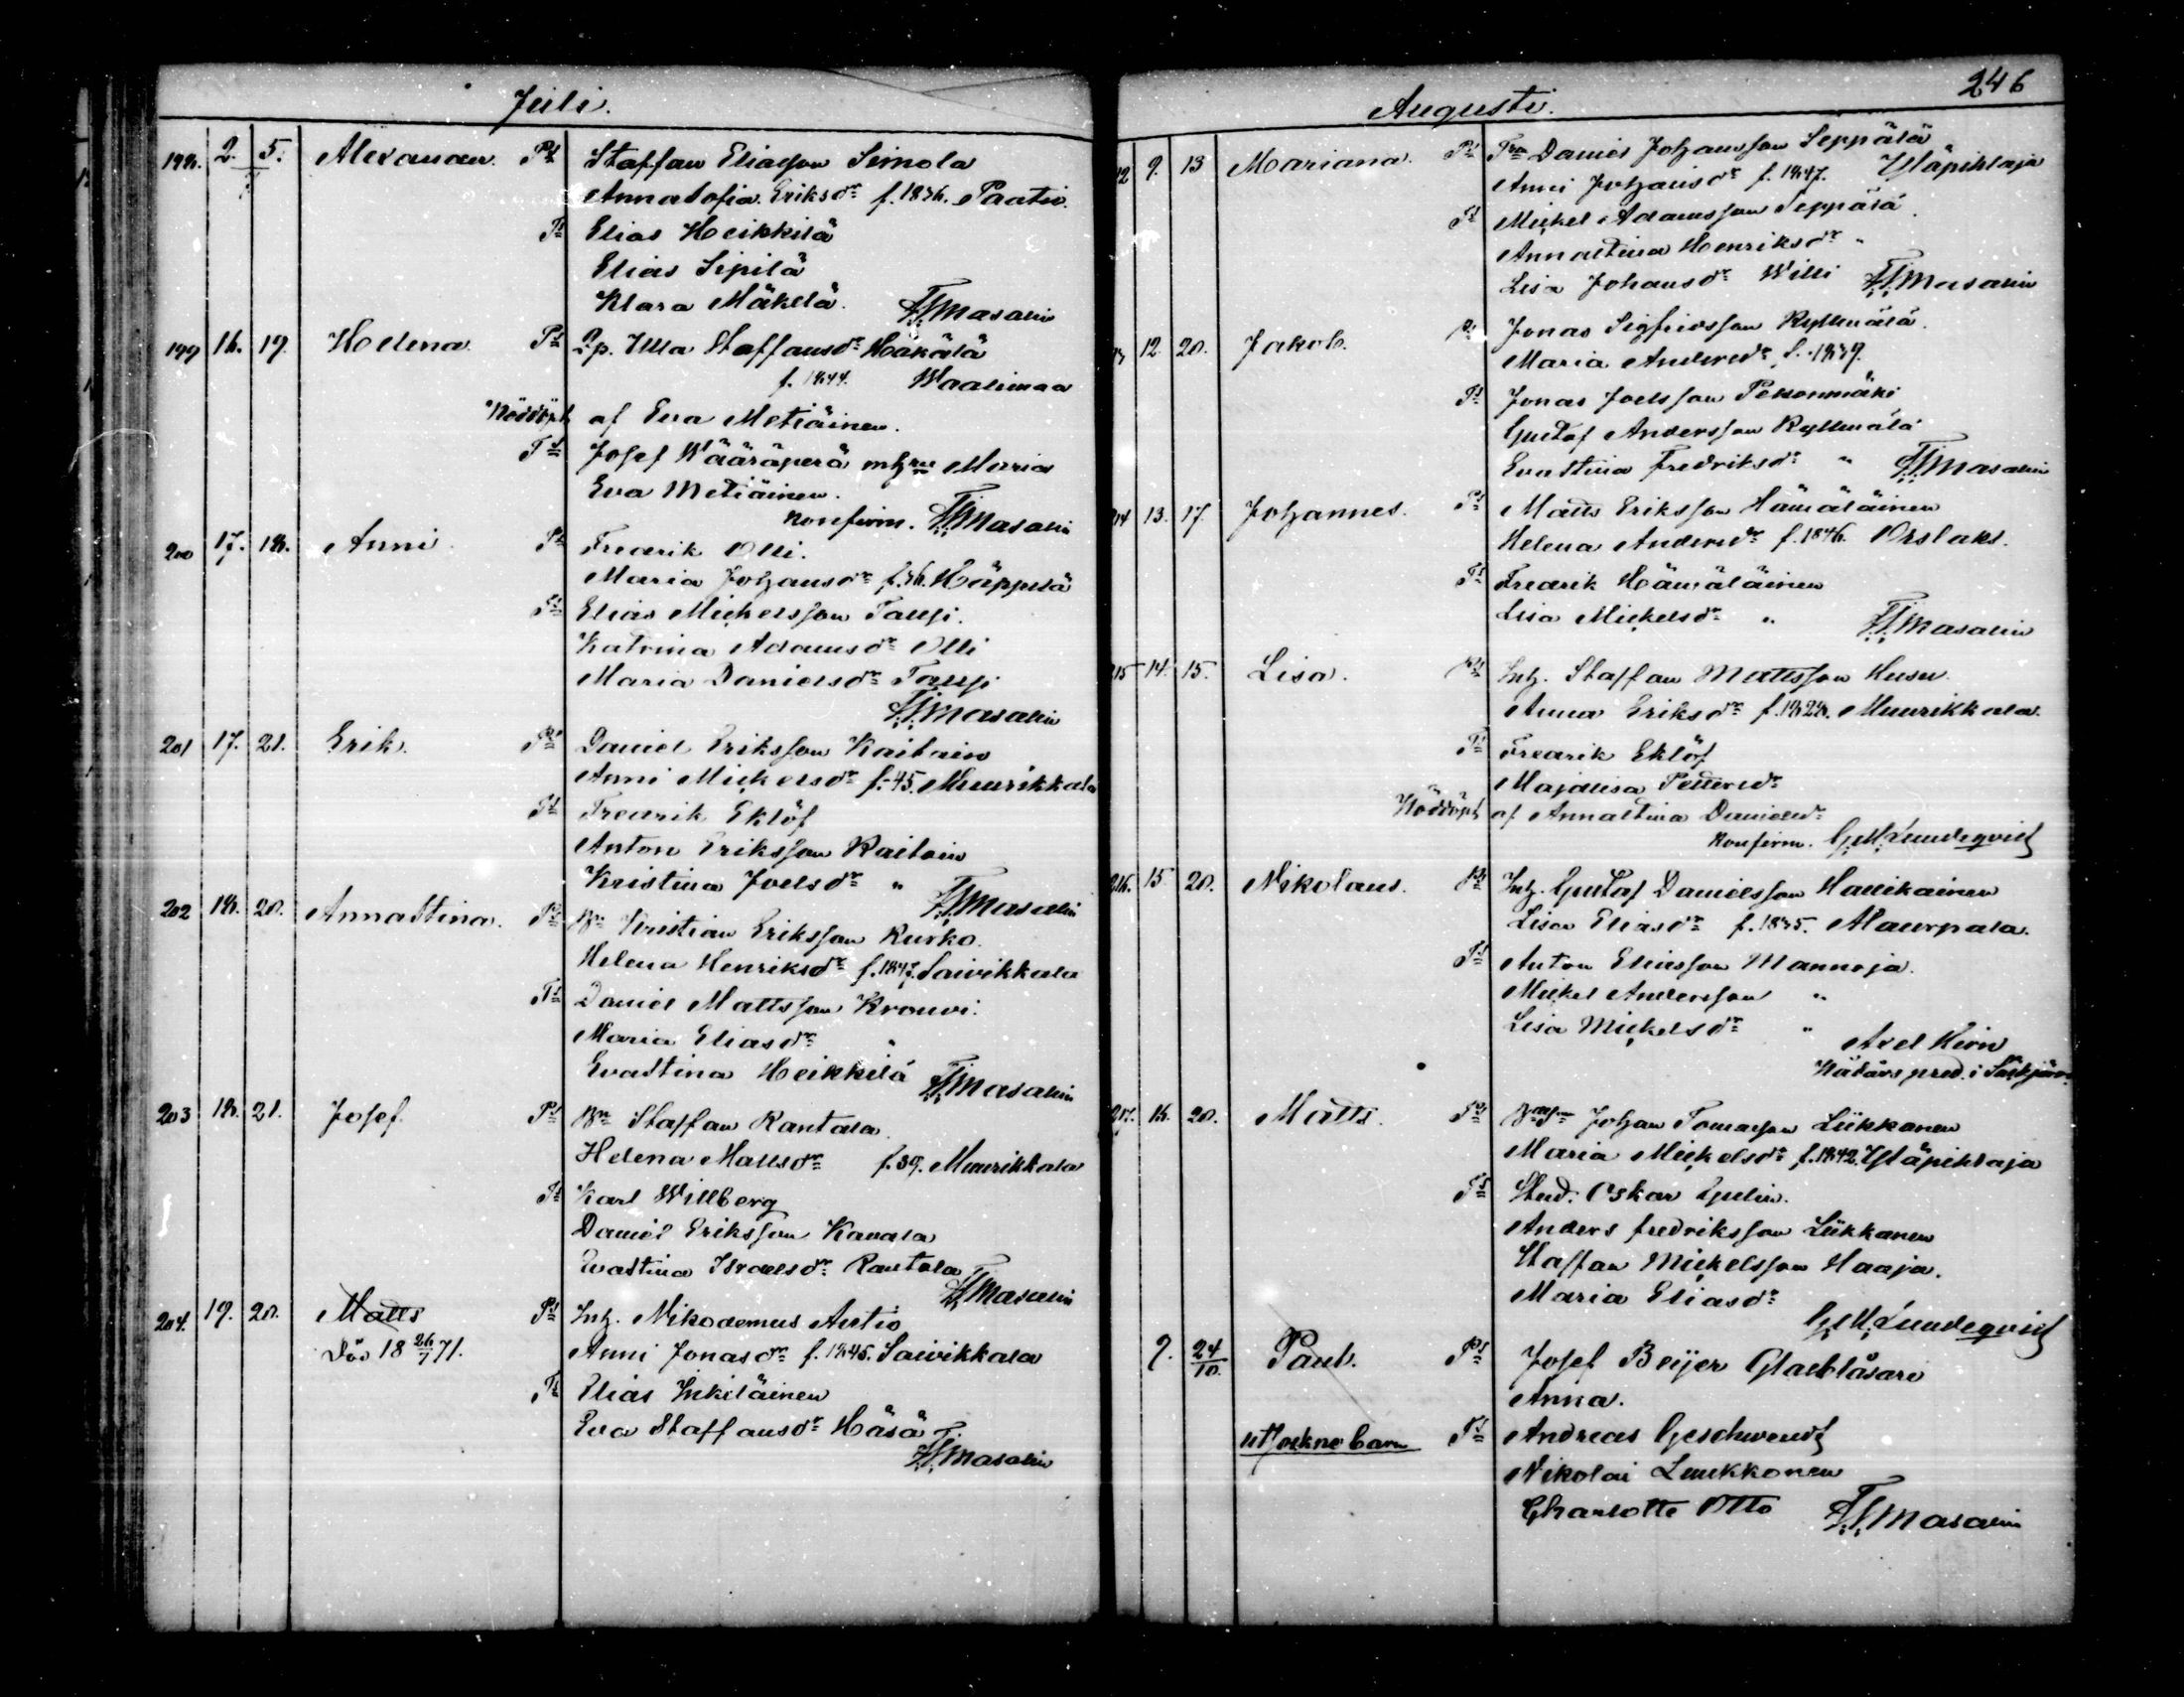 Juli.
198. 2. 5. Alexander. Ps Staffan Eliasson Simola
Annasofia Eriksdr f. 1836. Paatio.
Ts Elias Heikkilä
Elias Sipilä
Klara Mäkelä. Masalin
199 16. 19. Helena. Ps Qp. Ulla Staffansdr Häkälä
f. 1844. Waalimaa
Nöddöpt af Eva Metiäinen.
Ts Josef Wääräperä m hru Maria
Eva Metiäinen.
konfirm. Masalin
200 17. 18. Anni. Ps Fredrik Olli.
Maria Johansdr f. 36. Häppilä
Ts Elias Mickelsson Taugi.
Katrina Adamsdr Olli
Maria Danielsdr Taugi
Masalin
201 17. 21. Erik. Ps Daniel Eriksson Kaitain
Anni Mickelsdr f. 45. Muurikkala
Ts Fredrik Eklöf
Anton Eriksson Kaitain
Kristina Joelsdr "
Masalin
202 18. 20. Annastina. Ps Bn Kristian Eriksson Kurko.
Helena Henriksdr f. 1847. Saivikkala
Ts Daniel Mattsson Krouvi.
Maria Eliasdr "
Evastina Heikkilä Masalin
203 18. 21. Josef. Ps Bn Staffan Rantala.
Helena Mattsdr f. 39. Muurikkala
Ts Karl Willberg
Daniel Eriksson Kavala
Evastina Israelsdr Rantala
Masalin
204. 19. 20. Matts Ps Inh. Nikodemus Antio
Död 18 26/7 71. Anni Jonasdr f. 1845. Saivikkala
Ts Elias Inkiläinen
Eva Staffansdr Häsä
Masalin
246
Augusti.
12 9. 13 Mariana. Ps Daniel Johansson Seppälä
Anni Johansdr f. 1847. Yläpihlaja
Ts Mickel Adamsson Seppälä.
Annastina Henriksdr "
Lisa Johansdr Willi Masalin
13 12. 20. Jakob. Ps Jonas Sigfridsson Kyllmälä.
Maria Andersdr f. 1839.
Ts Jonas Joelsson Pekonmäki
Gustaf Andersson Kyllmälä
Evastina Fredriksdr " Masalin
214 13. 17. Johannes. Ps Matts Eriksson Hämäläinen
Helena Andersdr f. 1846. Orslaks.
Ts Fredrik Hämäläinen
Lisa Mickelsdr "
Masalin
215 14. 15. Lisa. Ps Inh. Staffan Mattsson Husu.
Anna Eriksdr f. 1828. Muurikkala.
Ts Fredrik Eklöf
Majalisa Pettersdr
Nöddöpt af Annastina Danielsdr
konfirm. G. M. Lundeqvist
216. 15 20. Nikolaus. Ps Inh. Gustaf Danielsson Hallikainen
Lisa Eliasdr f. 1835. Maurpala.
Ts Anton Eliasson Mannoja.
Mickel Andersson "
Lisa Mickelsdr "
Axel Hirn
pred. i Säkjärvi
217. 16. 20. Matts. Ps Johan Tomasson Liikkanen
Maria Mickelsdr f. 1842. Yläpihlaja
Ts Stud. Oskar Gulin.
Anders Fredriksson Liikkanen
Staffan Mickelsson Haaja.
Maria Eliasdr
G. M. Lundeqvist
9. 24/10. Paul. Ps Josef Beijer Glasblåsare
Anna.
utsockne barn Ts Andreas Geschwendt
Nikolai Luukkonen
Charlotte Otto Masalin